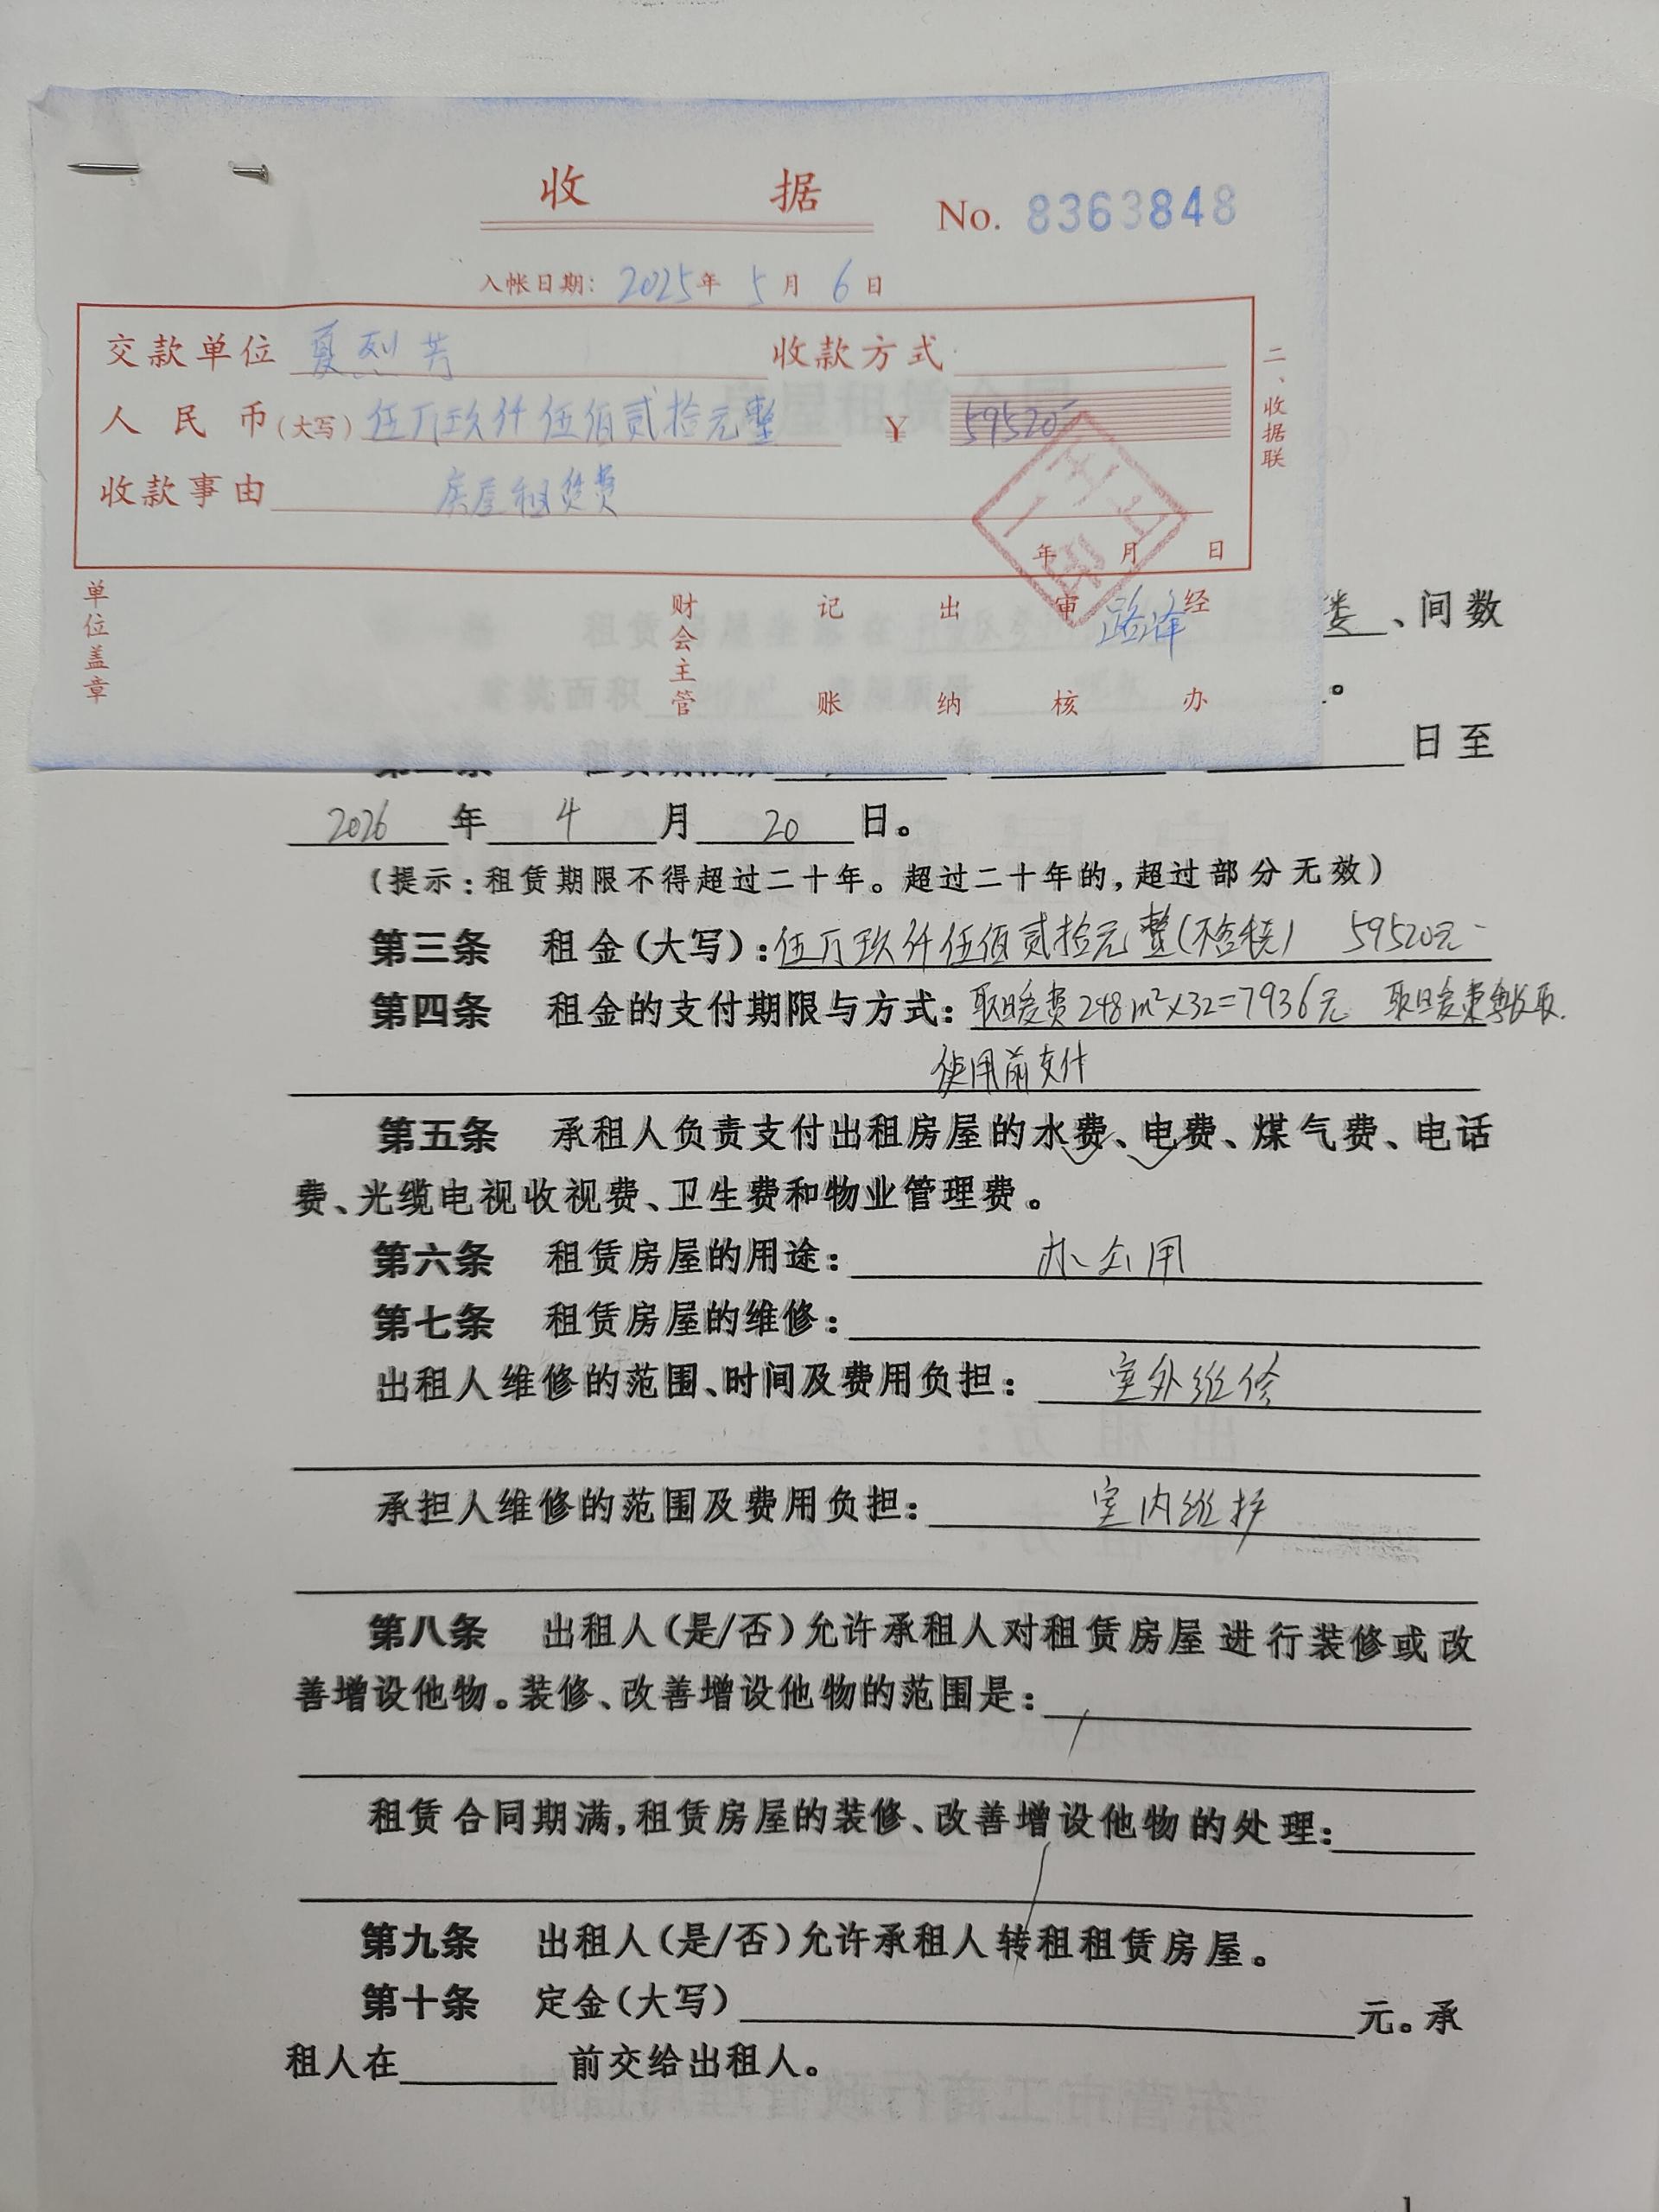 收 据 No. 8363848
入帐日期: 2025年 5月 6日
交款单位 夏烈芳 收款方式
人民币(大写) 伍万玖仟伍佰贰拾元整 ¥ 59520-
收款事由 房屋租赁费
年 月 日
二、收据联
单位盖章 财会主管 记账 出纳 审核 经办
路泽
楼、间数
。
日至
2026 年 4 月 20 日。
(提示:租赁期限不得超过二十年。超过二十年的,超过部分无效)
第三条 租金(大写):伍万玖仟伍佰贰拾元整(不含税) 59520元-
第四条 租金的支付期限与方式:取暖费248m²×32=7936元 取暖费
使用前支付
第五条 承租人负责支付出租房屋的水费、电费、煤气费、电话
费、光缆电视收视费、卫生费和物业管理费。
第六条 租赁房屋的用途: 办公用
第七条 租赁房屋的维修:
出租人维修的范围、时间及费用负担: 室外维修
承担人维修的范围及费用负担: 室内维护
第八条 出租人(是/否)允许承租人对租赁房屋进行装修或改
善增设他物。装修、改善增设他物的范围是:
租赁合同期满,租赁房屋的装修、改善增设他物的处理:
第九条 出租人(是/否)允许承租人转租租赁房屋。
第十条 定金(大写) 元。承
租人在 前交给出租人。
1